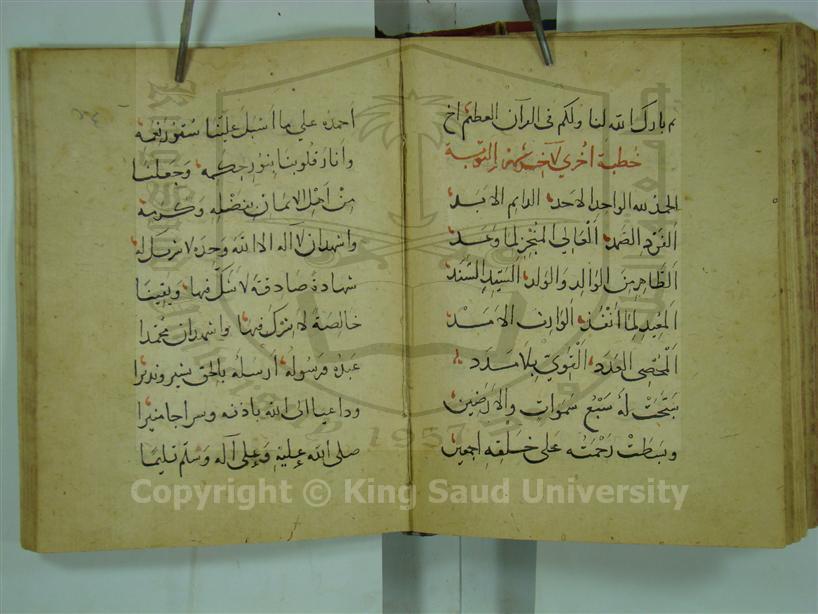 م بارك الله لنا ولكم في القرآن العظيم اخ
خطبة اخرى
الحمد لله الواحد الاحد الدايم الابد
الفرد الصمد العالي المنجز لما وعد
الطاهر من الوالد والولد السيد السند
المفيد لما انفذ الوارث الامد
المحصي العدد القوي بلا مدد
سبحت له سبع سموات والارضين
وبسطت رحمته على خلقه اجمعين
احمده على ما اسبل علينا ستور نعمه
وانار قلوبنا بنور حكمه وجعلنا
من اهل الايمان بفضله وكرمه
واشهد ان لا اله الا الله وحده لا شريك له
شهادة صادقة لا شك فيها ويقينا
خالصة لا شرك فيها واشهد ان محمدا
عبده ورسوله ارسله بالحق بشير ونذيرا
وداعيا الى الله باذنه وسراجا منيرا
صلى الله عليه وعلى آله وسلم تسليما
1957
Copyright © King Saud University